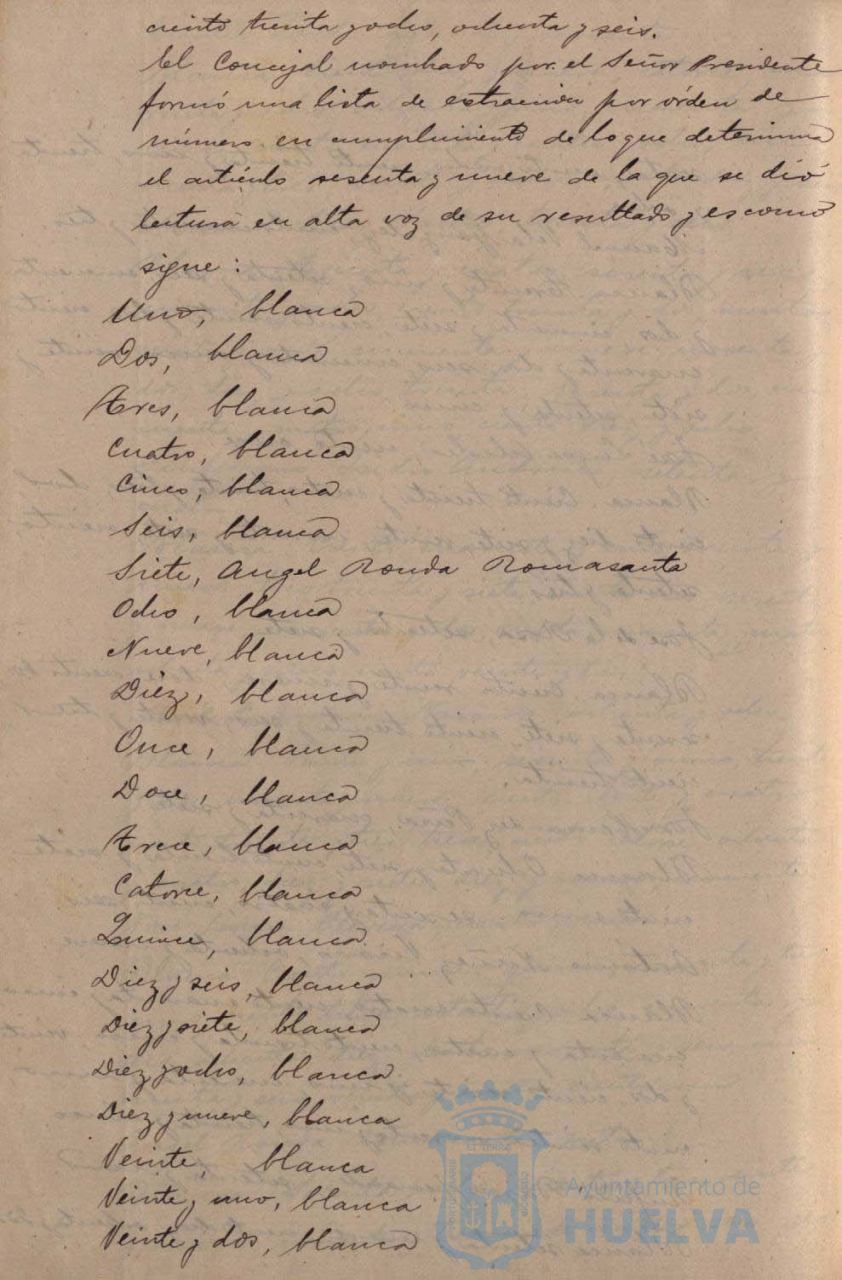 ciento treinta y ocho, ochenta y seis.
El Concejal nombrado por el Señor Presidente
formó una lista de extraccion por orden de
número en cumplimiento de lo que determina
el artículo sesenta y nueve de la que se dió
lectura en alta voz de su resultado y es como
sigue:
Uno, blanca
Dos, blanca
Tres, blanca
Cuatro, blanca
Cinco, blanca
Seis, blanca
Siete, Angel Ronda Romasanta
Ocho, blanca
Nueve, blanca
Diez, blanca
Once, blanca
Doce, blanca
Trece, blanca
Catorce, blanca
Quince, blanca
Diez y seis, blanca
Diez y siete, blanca
Diez y ocho, blanca
Diez y nueve, blanca
Veinte, blanca
Veinte y uno, blanca
Veinte y dos, blanca
Ayuntamiento de
HUELVA